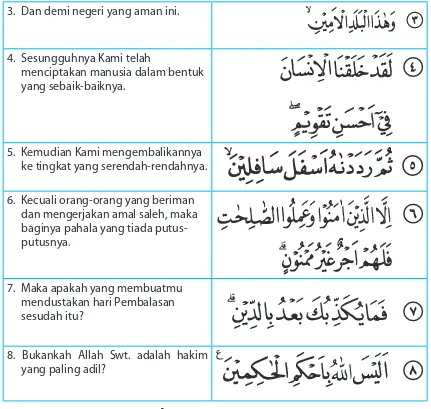 3. Dan demi negeri yang aman ini.
وَهٰذَا الْبَلَدِ الْاَمِيْنِۙ ٣
4. Sesungguhnya Kami telah
menciptakan manusia dalam bentuk
yang sebaik-baiknya.
لَقَدْ خَلَقْنَا الْاِنْسَانَ ٤
فِيْٓ اَحْسَنِ تَقْوِيْمٍۖ
5. Kemudian Kami mengembalikannya
ke tingkat yang serendah-rendahnya.
ثُمَّ رَدَدْنٰهُ اَسْفَلَ سَافِلِيْنَۙ ٥
6. Kecuali orang-orang yang beriman
dan mengerjakan amal saleh, maka
baginya pahala yang tiada putus-
putusnya.
اِلَّا الَّذِيْنَ اٰمَنُوْا وَعَمِلُوا الصّٰلِحٰتِ ٦
فَلَهُمْ اَجْرٌ غَيْرُ مَمْنُوْنٍۗ
7. Maka apakah yang membuatmu
mendustakan hari Pembalasan
sesudah itu?
فَمَا يُكَذِّبُكَ بَعْدُ بِالدِّيْنِۗ ٧
8. Bukankah Allah Swt. adalah hakim
yang paling adil?
اَلَيْسَ اللّٰهُ بِاَحْكَمِ الْحٰكِمِيْنَ ࣖ ٨